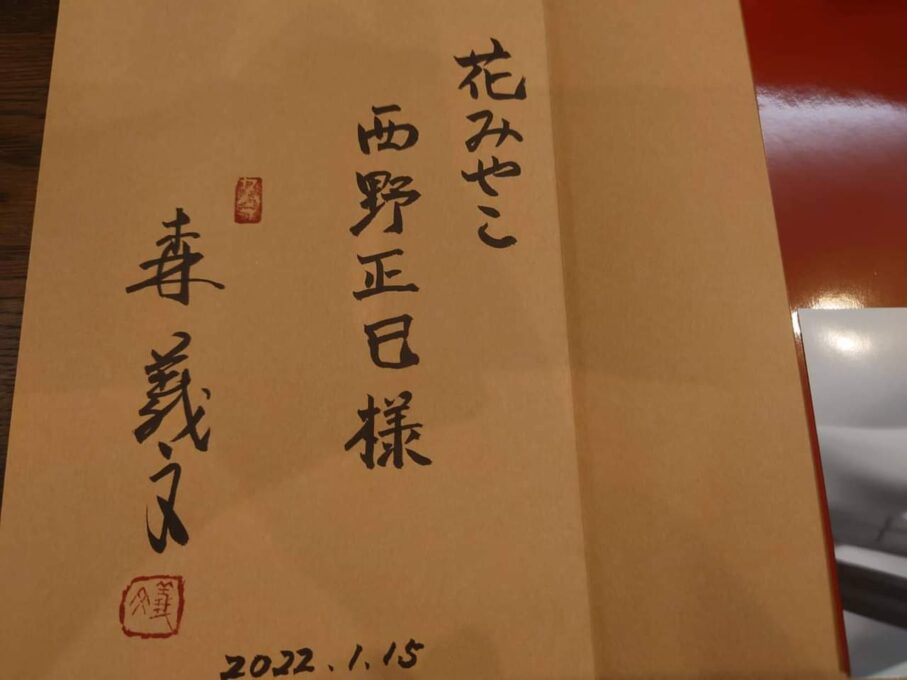 花みやこ
西野正巳様
森義文
義文
2022.1.15